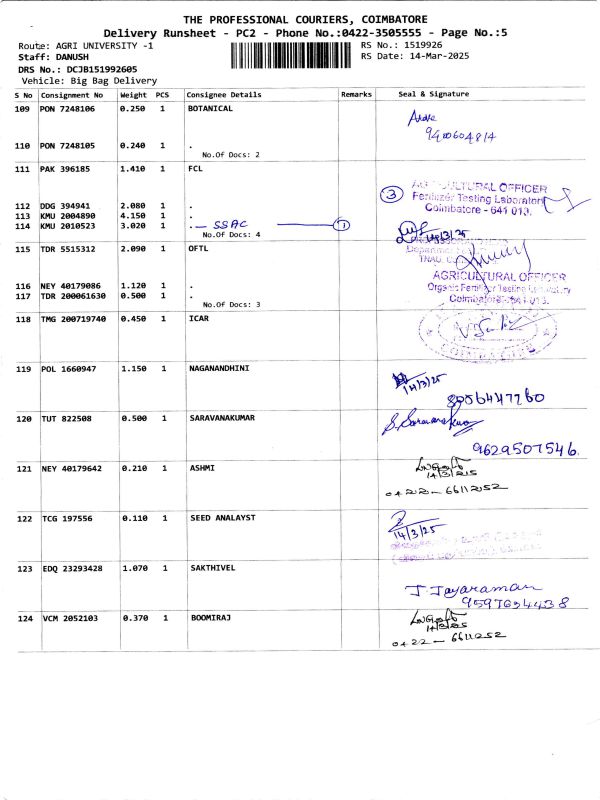 THE PROFESSIONAL COURIERS, COIMBATORE
Delivery Runsheet - PC2 - Phone No.:0422-3505555 - Page No.:5
Route: AGRI UNIVERSITY -1
RS No.: 1519926
Staff: DANUSH
RS Date: 14-Mar-2025
DRS No.: DCJB151992605
Vehicle: Big Bag Delivery
S No Consignment No Weight PCS Consignee Details Remarks Seal & Signature
109 PON 7248106 0.250 1 BOTANICAL
110 PON 7248105 0.240 1 .
No.Of Docs: 2
111 PAK 396185 1.410 1 FCL
3 AGRICULTURAL OFFICER
Fertilizer Testing Laboratory
Coimbatore - 641 013.
112 DDG 394941 2.080 1 .
113 KMU 2004890 4.150 1 .
114 KMU 2010523 3.020 1 . - SSAC 1
No.Of Docs: 4
14/3/25
115 TDR 5515312 2.090 1 OFTL
AGRICULTURAL OFFICER
116 NEY 40179086 1.120 1 .
117 TDR 200061630 0.500 1 .
No.Of Docs: 3
Coimbatore-641 013.
118 TMG 200719740 0.450 1 ICAR
COIMBATORE
119 POL 1660947 1.150 1 NAGANANDHINI
14/3/25
120 TUT 822508 0.500 1 SARAVANAKUMAR
S. Saravanakumar
9629507546.
121 NEY 40179642 0.210 1 ASHMI
0422-6611252
122 TCG 197556 0.110 1 SEED ANALAYST
14/3/25
123 EDQ 23293428 1.070 1 SAKTHIVEL
J. Jayaraman
9597694438
124 VCM 2052103 0.370 1 BOOMIRAJ
0422-6611252